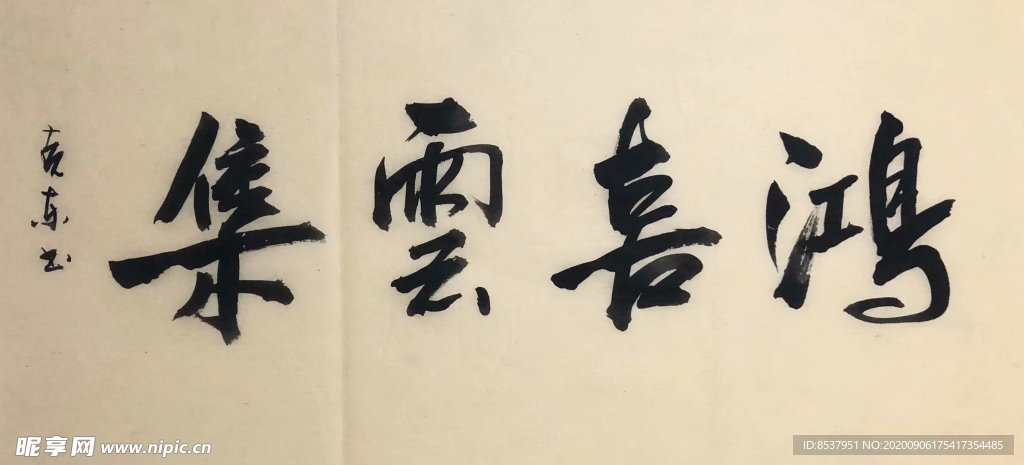 鴻喜雲集
克東书
昵享网 www.nipic.cn
ID:8537951 NO:20200906175417354485